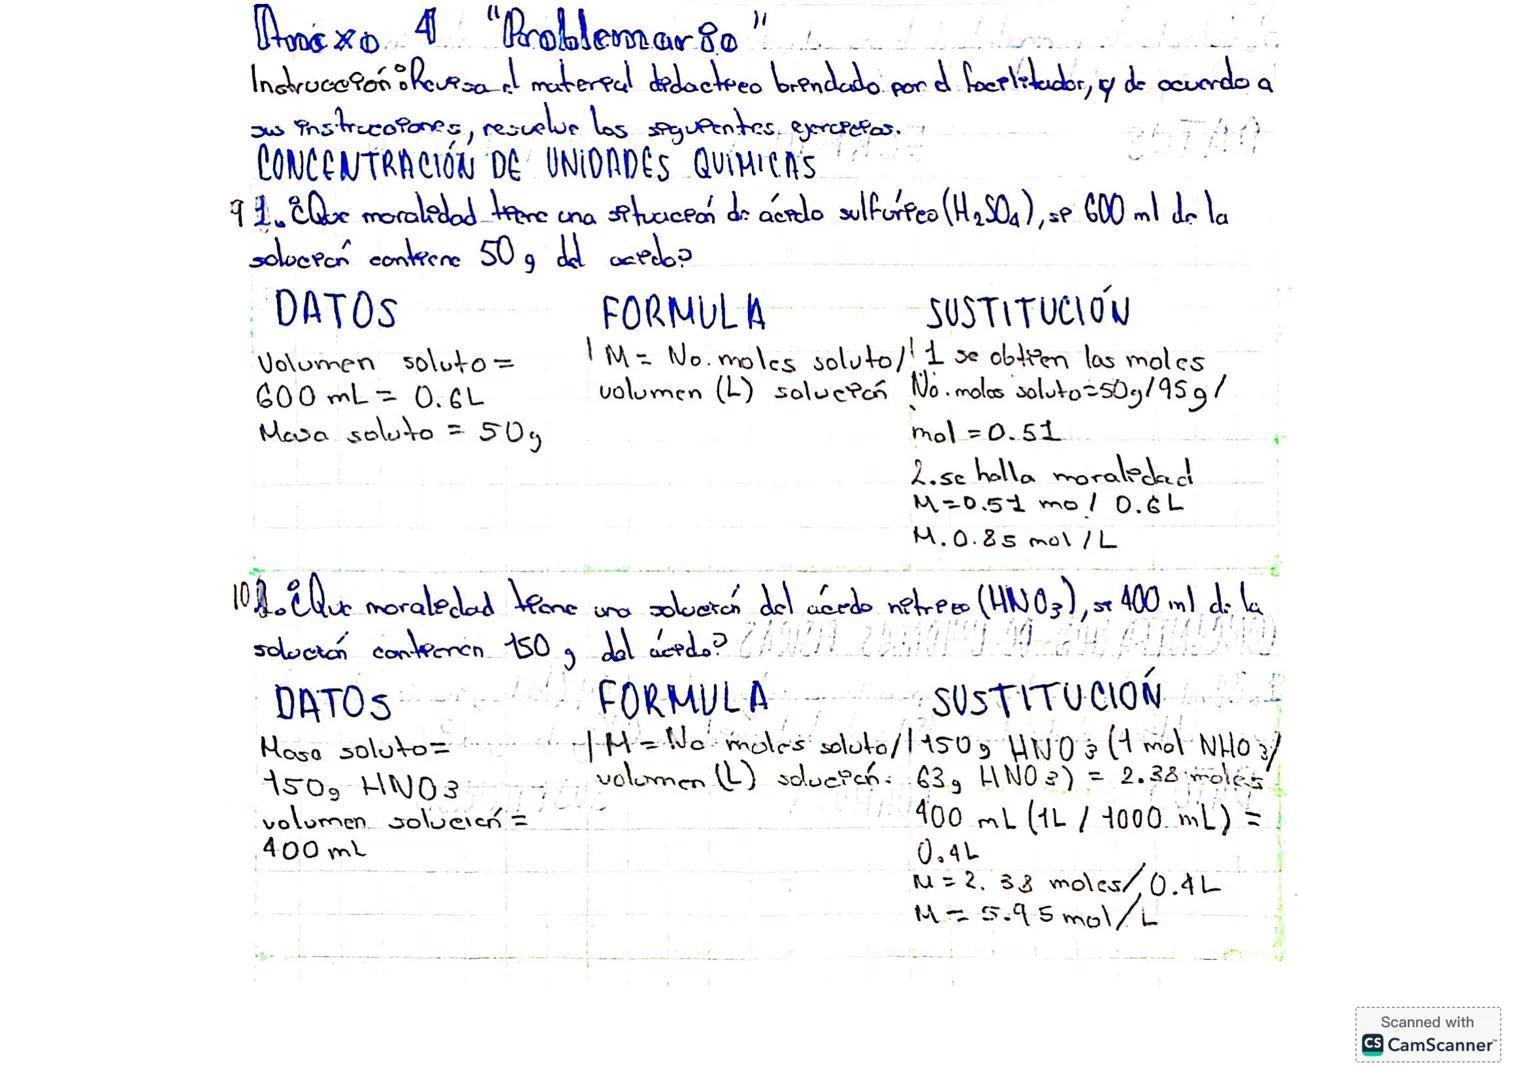 Anexo 4 "Problemario"
Instrucción: Revisa el material didactico brindado por el facilitador, y de acuerdo a
sus instrucciones, resuelve los siguientes ejercicios.
CONCENTRACIÓN DE UNIDADES QUIMICAS
9 1. ¿Que moralidad tiene una situación de ácido sulfúrico (H2SO4), si 600 ml de la
solución contiene 50 g del acido?
DATOS FORMULA SUSTITUCIÓN
Volumen soluto =
600 mL = 0.6L
Masa soluto = 50g
M = No. moles soluto/
volumen (L) solución
1 se obtien las moles
No. moles soluto=50g/95g/
mol = 0.51
2. se halla moralidad
M=0.51 mo/ 0.6L
M. 0.85 mol /L
10 2. ¿Que moralidad tiene una solución del ácido nitrico (HNO3), si 400 ml de la
solución contienen 150 g del ácido?
DATOS FORMULA SUSTITUCIÓN
Masa soluto=
150g HNO3
volumen solución =
400 mL
M = No moles soluto/
volumen (L) solución.
150g HNO3 (1 mol NHO3/
63g HNO3) = 2.38 moles
400 mL (1L / 1000 mL) =
0.4L
M = 2.38 moles/0.4L
M = 5.95 mol/L
Scanned with
CS CamScanner